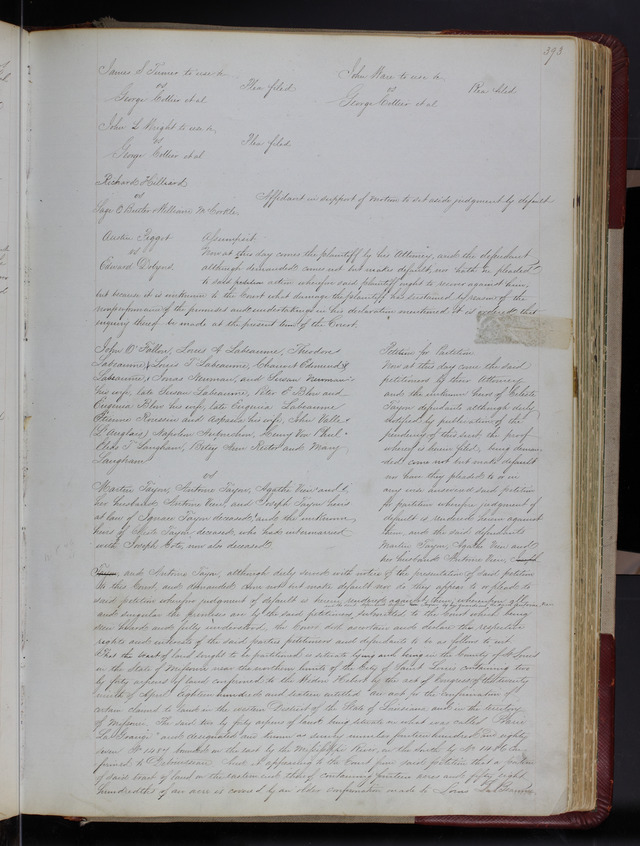 393
James S. Tunis to use &
vs
George Collier et al
Plea filed
John Ware to use &
vs
George Collier et al
Plea filed
John L Wright to use &
vs
George Collier et al
Plea filed
Richard Hilleard
vs
Sage C Butler William M Corkle
Affidavit in support of motion to set aside judgment by default
Austin Piggot
vs
Edward Dobyns
Assumpsit
Now at this day comes the plaintiff by his Attorney, and the defendant
although demanded comes not but makes default, nor hath he pleaded
to said action wherefore said plaintiff ought to recover against him,
but because it is unknown to the Court what damage the plaintiff has sustained by reason of the
nonperformance of the promises and undertakings in his declaration mentioned it is ordered that
inquiry thereof be made at the present term of the Court.
John O' Fallon, Louis A Labeaume, Theodore
Labeaume, Louis T Labeaume, Chauvet Edmond
Labeaume, Jonas Newman, and Susan Newman
his wife, late Susan Labeaume, Peter E Blow and
Eugenia Blow his wife, late Eugenia Labeaume
Etienne and his wife, John Valle
Napoleon Henry Von Phul
Chas T Langham, Riley Ann Rector and Mary
Langham
vs
Martin Tayon, Antoine Tayon, Agathe Vien and
her husband Antoine Vien, and Joseph Tayon heirs
at law of Ignace Tayon deceased, and the unknown
heirs of Celeste Tayon deceased, who had intermarried
with Joseph Cote, now also deceased
Petition for Partition
Now at this day come the said
petitioners by their Attorney
and the unknown heirs of Celeste
Tayon defendants although duly
notified by publication of the
pendency of this suit the proof
whereof is herein filed, being deman
ded come not but make default
nor have they pleaded to or in
any wise answered said petition
for partition wherefore judgment of
default is rendered herein against
them, and the said defendants
Martin Tayon, Agathe Vien and
her husband Antoine Vien, Joseph
Tayon, and Antoine Tayon, although duly served with notice of the presentation of said petition
to this Court, and demanded come not but make default nor do they appear or plead to
said petition whereof judgment of default is herein rendered against them, whereupon all
and singular the premises and by the said petitioners submitted to the Court being
seen heard and fully understood, the Court doth ascertain and declare the respective
rights and interests of the said parties petitioners and defendants to be as follows to wit
That the tract of land sought to be partitioned is situate lying and being in the County of St Louis
in the State of Missouri near the northern limits of the City of Saint Louis containing two
by forty arpens of land confirmed to the Widow Hebert by the act of Congress of the twenty
ninth of April eighteen hundred and sixteen entitled "an act for the confirmation of
certain claims to land in the western District of the State of Louisiana and in the territory
of Missouri. The said two by forty arpens of land being situate in what was called "Prairie
La Grange" and designated and known as survey number fourteen hundred and eighty
seven No 1487 bounded on the east by the Mississippi River, on the south by No con-
firmed to And it appearing to the Court from said petition that a portion
of said tract of land on the eastern end thereof containing fourteen acres and fifty eight
hundredths of an acre is covered by an older confirmation made to Louis Labeaume